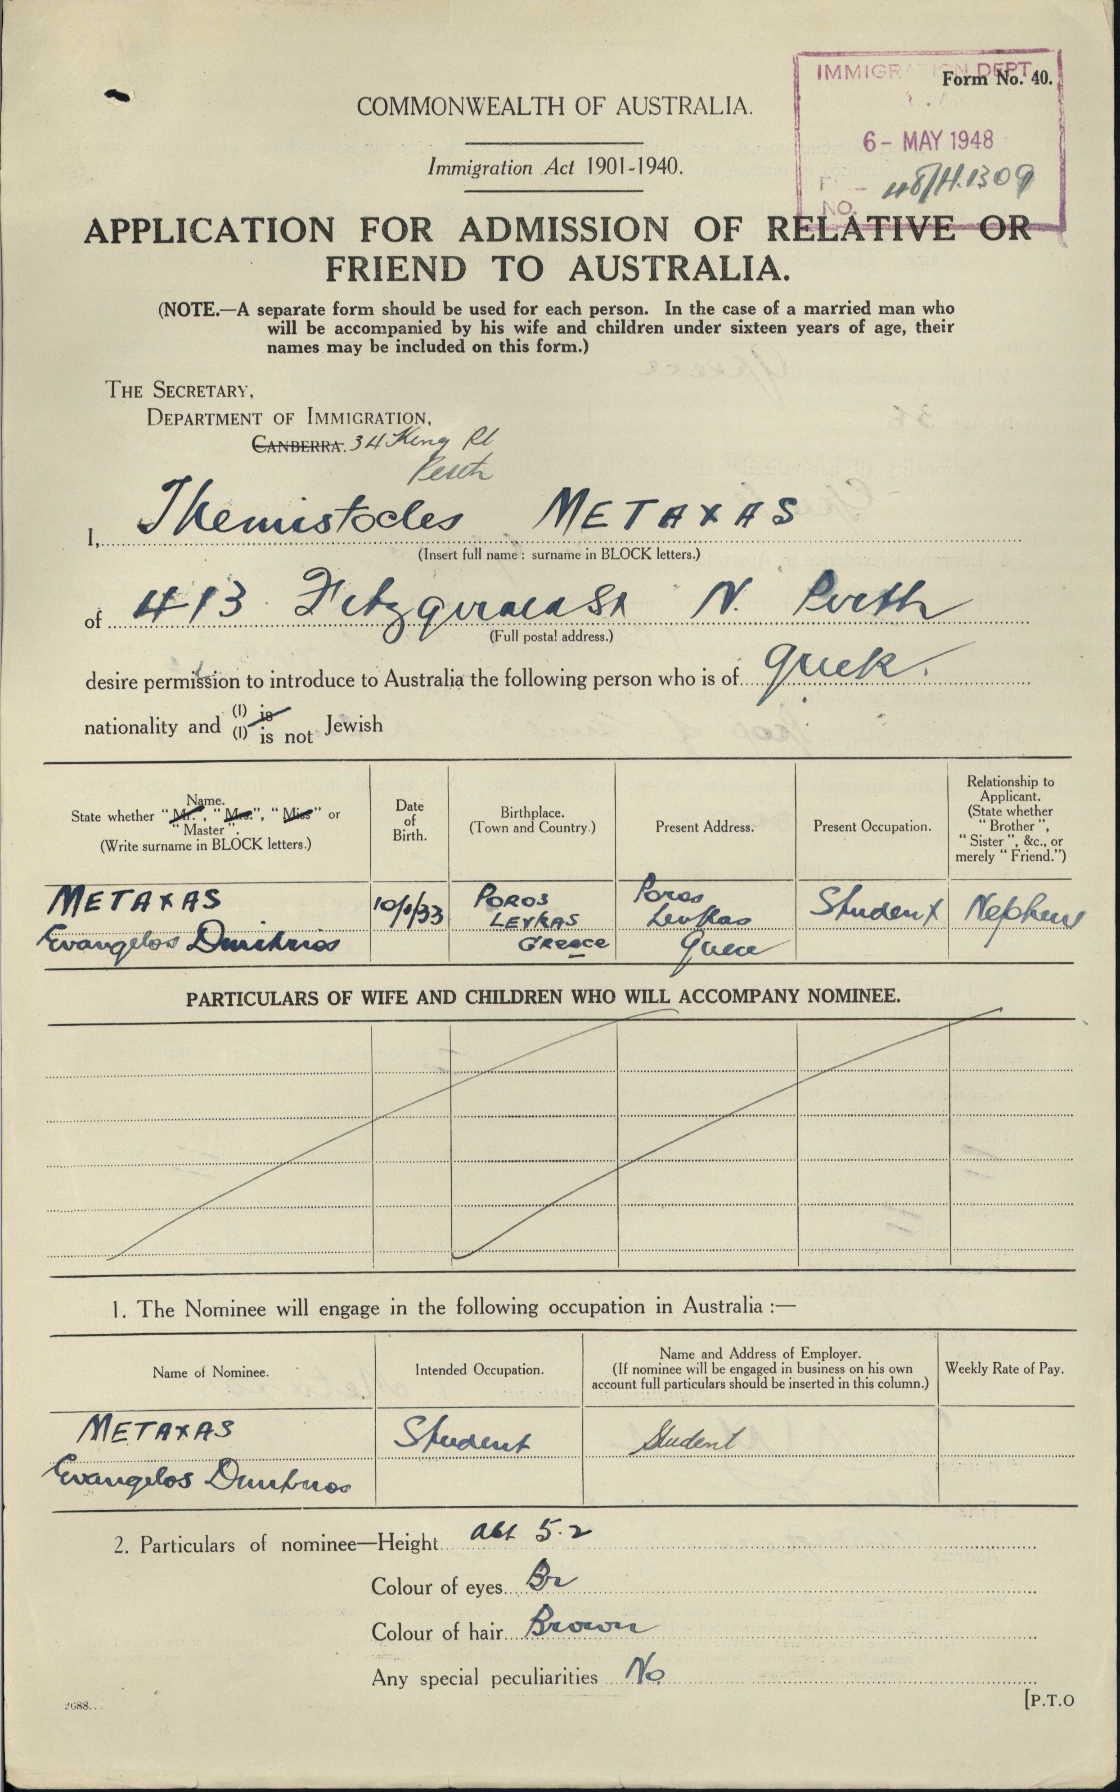 IMMIGRATION DEPT
Form No. 40.
COMMONWEALTH OF AUSTRALIA.
6 - MAY 1948
Immigration Act 1901-1940.
48/H.1309
NO.
APPLICATION FOR ADMISSION OF RELATIVE OR
FRIEND TO AUSTRALIA.
(NOTE.—A separate form should be used for each person. In the case of a married man who
will be accompanied by his wife and children under sixteen years of age, their
names may be included on this form.)
THE SECRETARY,
DEPARTMENT OF IMMIGRATION,
CANBERRA. 34 King St
Perth
I, Themistocles METAXAS
(Insert full name: surname in BLOCK letters.)
of 413 Fitzgerald St N. Perth
(Full postal address.)
desire permission to introduce to Australia the following person who is of Greek.
nationality and (1) is (1) is not Jewish
Name.
State whether "Mr.", "Mrs.", "Miss" or
"Master".
(Write surname in BLOCK letters.)
Date
of
Birth.
Birthplace.
(Town and Country.)
Present Address.
Present Occupation.
Relationship to
Applicant.
(State whether
"Brother",
"Sister", &c., or
merely "Friend.")
METAXAS
Evangelos Dimitrios
10/1/33
POROS
LEVKAS
GREECE
Poros
Levkas
Greece
Student
Nephew
PARTICULARS OF WIFE AND CHILDREN WHO WILL ACCOMPANY NOMINEE.
1. The Nominee will engage in the following occupation in Australia :—
Name of Nominee.
Intended Occupation.
Name and Address of Employer.
(If nominee will be engaged in business on his own
account full particulars should be inserted in this column.)
Weekly Rate of Pay.
METAXAS
Evangelos Dimitrios
Student
Student
2. Particulars of nominee—Height abt 5.2
Colour of eyes Br
Colour of hair Brown
Any special peculiarities No
2688
[P.T.O